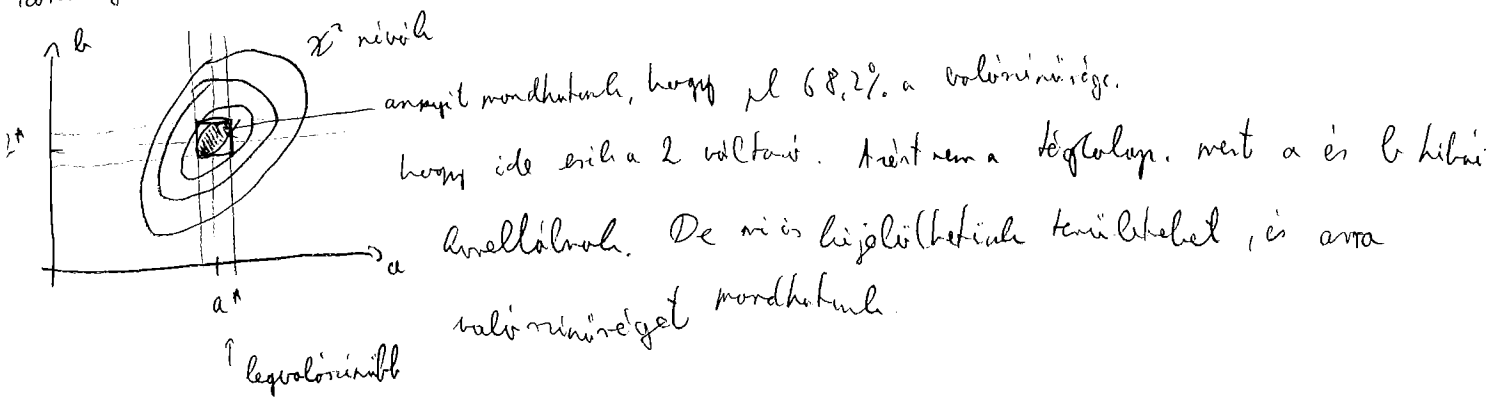 b
χ² nívók
annyit mondhatunk, hogy pl 68,2% a valószínűsége.
hogy ide esik a 2 változó. Azért nem a téglalap. mert a és b hibái
korrellálnak. De mi is kijelölhetünk területeket, és arra
valószínűséget mondhatunk.
b*
a
a*
↑ legvalószínűbb